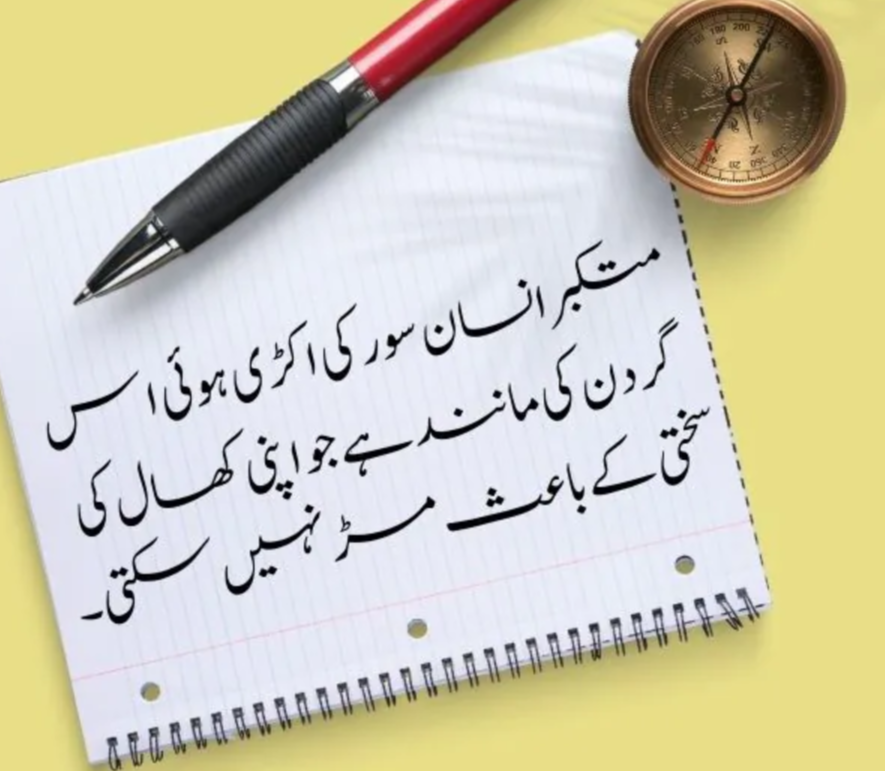 متکبر انسان سور کی اکڑی ہوئی اس
گردن کی مانند ہے جو اپنی کھال کی
سختی کے باعث مڑ نہیں سکتی۔